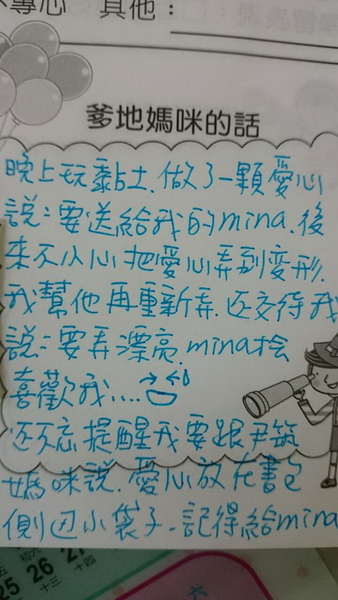 不專心 其他：
爹地媽咪的話
晚上玩黏土.做了一顆愛心
說：要送給我的mina.後
來不小心把愛心弄到变形.
我幫他再重新弄.还交待我
說：要弄漂亮.mina才会
喜歡我....
还不忘提醒我要跟尹筑
媽咪說.愛心放在書包
側边小袋子.記得給mina
初六
25 26 27
十三 十四
六